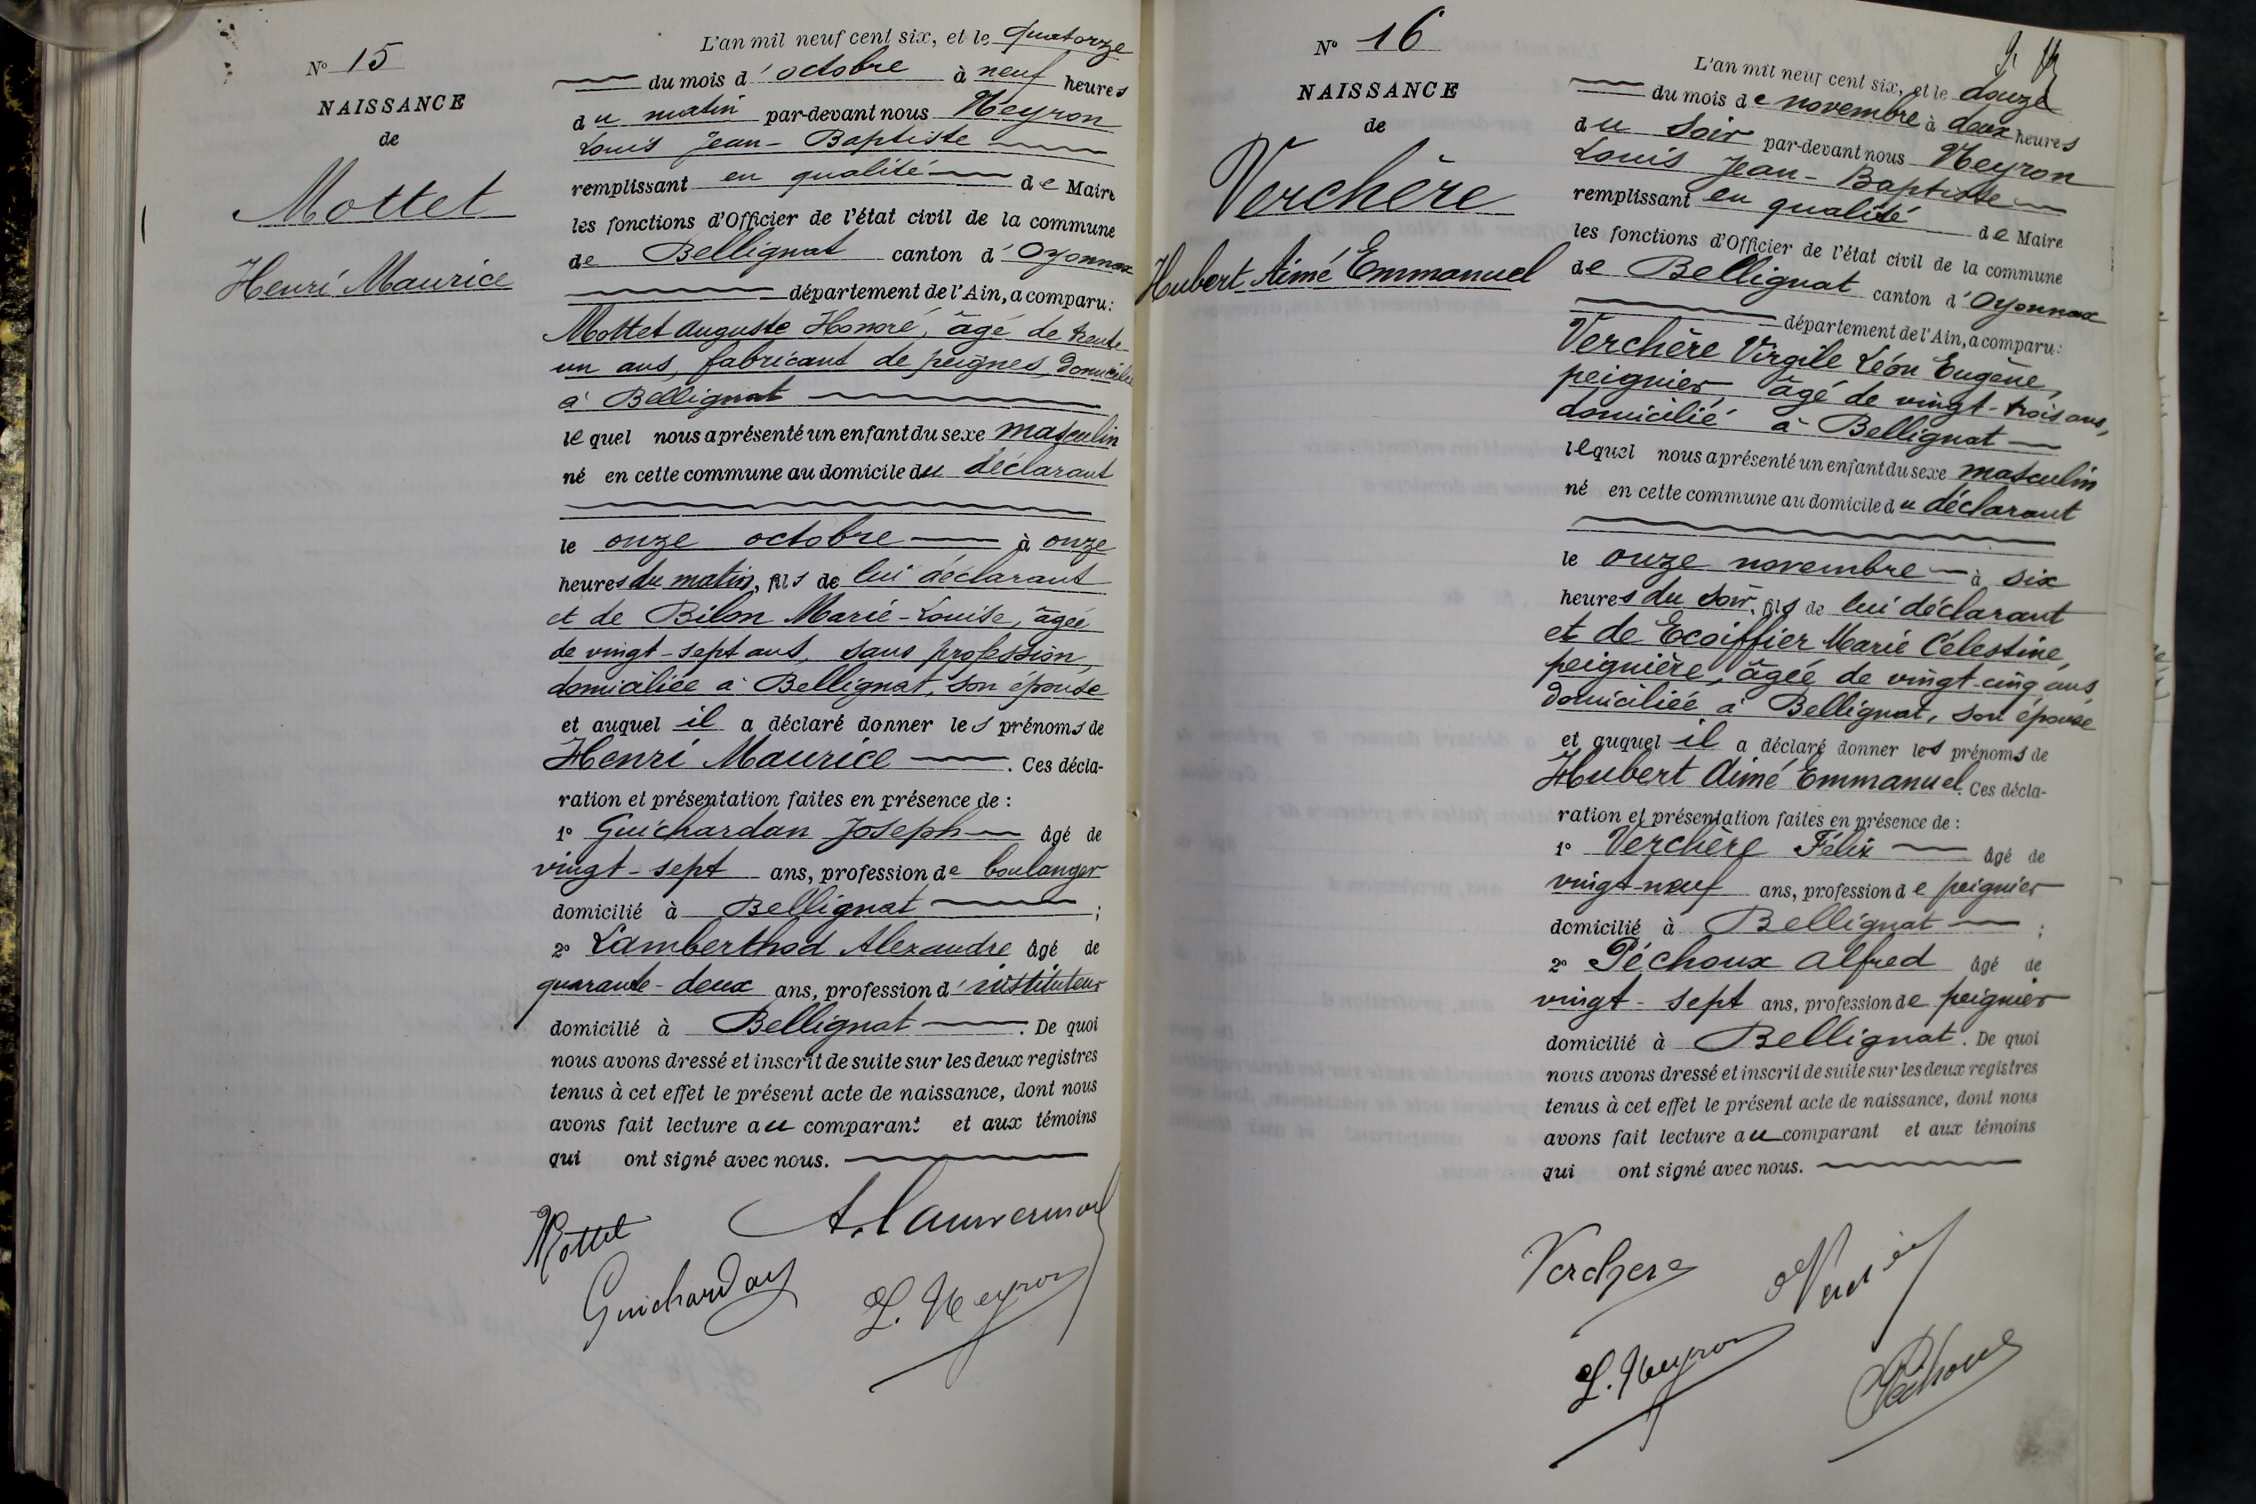 N° 15
NAISSANCE
de
Mottet
Henri Maurice
L'an mil neuf cent six, et le quatorze
du mois d'octobre à neuf heures
du matin par-devant nous Neyron
Louis Jean-Baptiste
remplissant en qualité de Maire
les fonctions d'Officier de l'état civil de la commune
de Bellignat canton d'Oyonnax
département de l'Ain, a comparu:
Mottet Auguste Honoré, âgé de trente-
un ans, fabricant de peignes, domicilié
à Bellignat
lequel nous a présenté un enfant du sexe masculin
né en cette commune au domicile du déclarant
le onze octobre à onze
heures du matin, fils de lui déclarant
et de Bilon Marie-Louise, âgée
de vingt-sept ans, sans profession,
domiciliée à Bellignat, son épouse
et auquel il a déclaré donner les prénoms de
Henri Maurice. Ces décla-
ration et présentation faites en présence de :
1° Guichardan Joseph âgé de
vingt-sept ans, profession de boulanger
domicilié à Bellignat ;
2° Lamberthod Alexandre âgé de
quarante-deux ans, profession d'instituteur
domicilié à Bellignat. De quoi
nous avons dressé et inscrit de suite sur les deux registres
tenus à cet effet le présent acte de naissance, dont nous
avons fait lecture au comparant et aux témoins
qui ont signé avec nous.
Mottet
Guichardan L. Neyron
N° 16
NAISSANCE
de
Verchère
Hubert Aimé Emmanuel
L'an mil neuf cent six, et le douze
du mois de novembre à deux heures
du soir par-devant nous Neyron
Louis Jean-Baptiste
remplissant en qualité de Maire
les fonctions d'Officier de l'état civil de la commune
de Bellignat canton d'Oyonnax
département de l'Ain, a comparu:
Verchère Virgile Léon Eugène,
peignier, âgé de vingt-trois ans,
domicilié à Bellignat
lequel nous a présenté un enfant du sexe masculin
né en cette commune au domicile du déclarant
le onze novembre à six
heures du soir, fils de lui déclarant
et de Ecoiffier Marie Célestine,
peignière, âgée de vingt-cinq ans,
domiciliée à Bellignat, son épouse
et auquel il a déclaré donner les prénoms de
Hubert Aimé Emmanuel. Ces décla-
ration et présentation faites en présence de :
1° Verchère Félix âgé de
vingt-neuf ans, profession de peignier
domicilié à Bellignat ;
2° Péchoux Alfred âgé de
vingt-sept ans, profession de peignier
domicilié à Bellignat. De quoi
nous avons dressé et inscrit de suite sur les deux registres
tenus à cet effet le présent acte de naissance, dont nous
avons fait lecture au comparant et aux témoins
qui ont signé avec nous.
Verchere
L. Neyron Péchoux